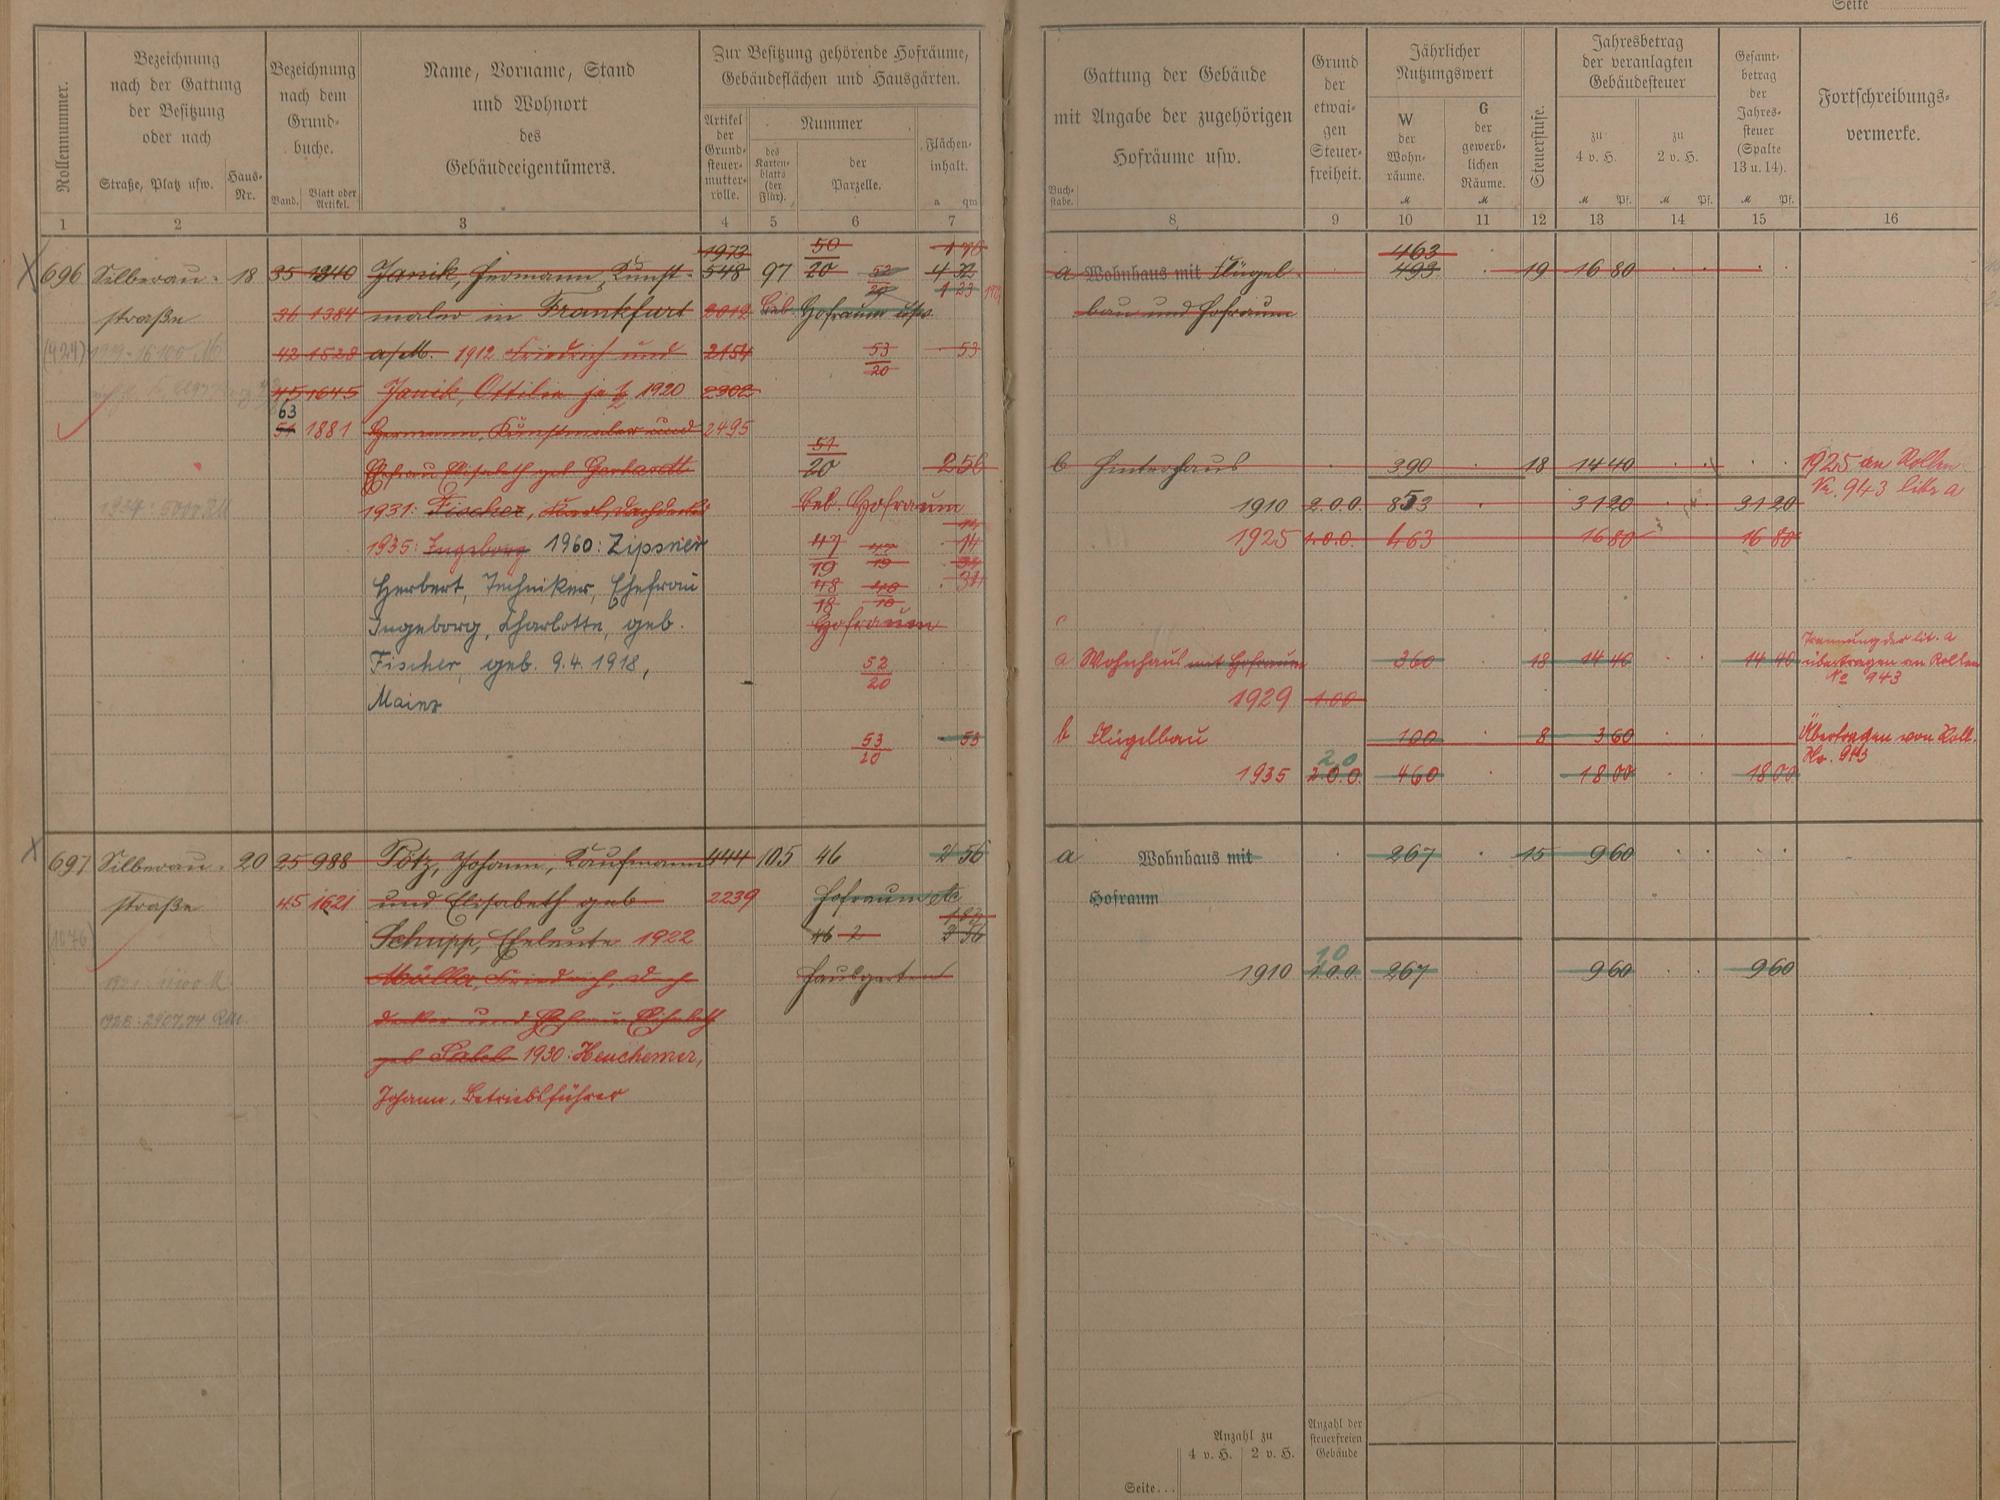 Seite
Rollennummer.
Bezeichnung
nach der Gattung
der Besitzung
oder nach
Straße, Platz usw.
Haus-
Nr.
Bezeichnung
nach dem
Grund-
buche.
Band.
Blatt oder
Artikel.
Name, Vorname, Stand
und Wohnort
des
Gebäudeeigentümers.
Zur Besitzung gehörende Hofräume,
Gebäudeflächen und Hausgärten.
Artikel
der
Grund-
steuer-
mutter-
rolle.
Nummer
des
Karten-
blatts
(der
Flur).
der
Parzelle.
Flächen-
inhalt.
a qm
Gattung der Gebäude
mit Angabe der zugehörigen
Hofräume usw.
Buch-
stabe.
Grund
der
etwai-
gen
Steuer-
freiheit.
Jährlicher
Nutzungswert
W
der
Wohn-
räume.
M
G
der
gewerb-
lichen
Räume.
M
Steuerstufe.
Jahresbetrag
der veranlagten
Gebäudesteuer
zu
4 v. H.
M Pf.
zu
2 v. H.
M Pf.
Gesamt-
betrag
der
Jahres-
steuer
(Spalte
13 u. 14).
M Pf.
Fortschreibungs-
vermerke.
1 2 3 4 5 6 7 8 9 10 11 12 13 14 15 16
1973 50 463
696 Silberau- 18 35 1340 Janik, Hermann, Kunst- 548 97 20 a Wohnhaus mit Flügel- 493 19 16 80
straße 36 1384 maler in Frankfurt 2012 Hofraum usw. bau und Hofraum
42 1528 a/M. 1912 Friedrich und 2154 53/20 53
45 1645 Janik, Ottilie je ½ 1920 2302
63
51 1881 Hermann, Kunstmaler und 2495
Ehefrau Elisabeth geb Gerhardt 51/20 2 56 b Hinterhaus 390 18 14 40 1925 an Rollen
Nr. 943 litr a
1931: Fischer, Karl, Dachdecker beb. Hofraum 1910 2.0.0. 853 31 20 31 20
1935: Ingeborg 1960: Zipsner 47/19 14 1925 1.0.0. 463 16 80 16 80
Herbert, Techniker, Ehefrau 48/18
Ingeborg, Charlotte, geb. Hofraum c
Fischer, geb. 9.4.1918, 52/20 a Wohnhaus mit Hofraum 360 18 14 40 14 40 Trennung der lit. a
übertragen an Rollen
No 943
Mainz 1929 1.00
53/20 53 b Flügelbau 100 8 3 60 Übertragen von Roll.
No. 943
20
1935 2.0.0. 460 18 00 18 00
697 Silberau- 20 25 988 Pötz, Johann, Kaufmann 444 105 46 2 56 a Wohnhaus mit 267 15 9 60
straße 45 1621 und Elisabeth geb 2239 Hofraum etc Hofraum
Schupp, Eheleute 1922 46 2
Müller, Friedrich, Dach Hausgarten 10
1910 1.0.0. 267 9 60 9 60
decker und Ehefrau Elisabeth
1928: 2907,74 RM.
geb Sabel 1930: Heuchemer,
Johann, Betriebsführer
Anzahl zu
4 v. H. 2 v. H.
Anzahl der
steuerfreien
Gebäude
Seite...